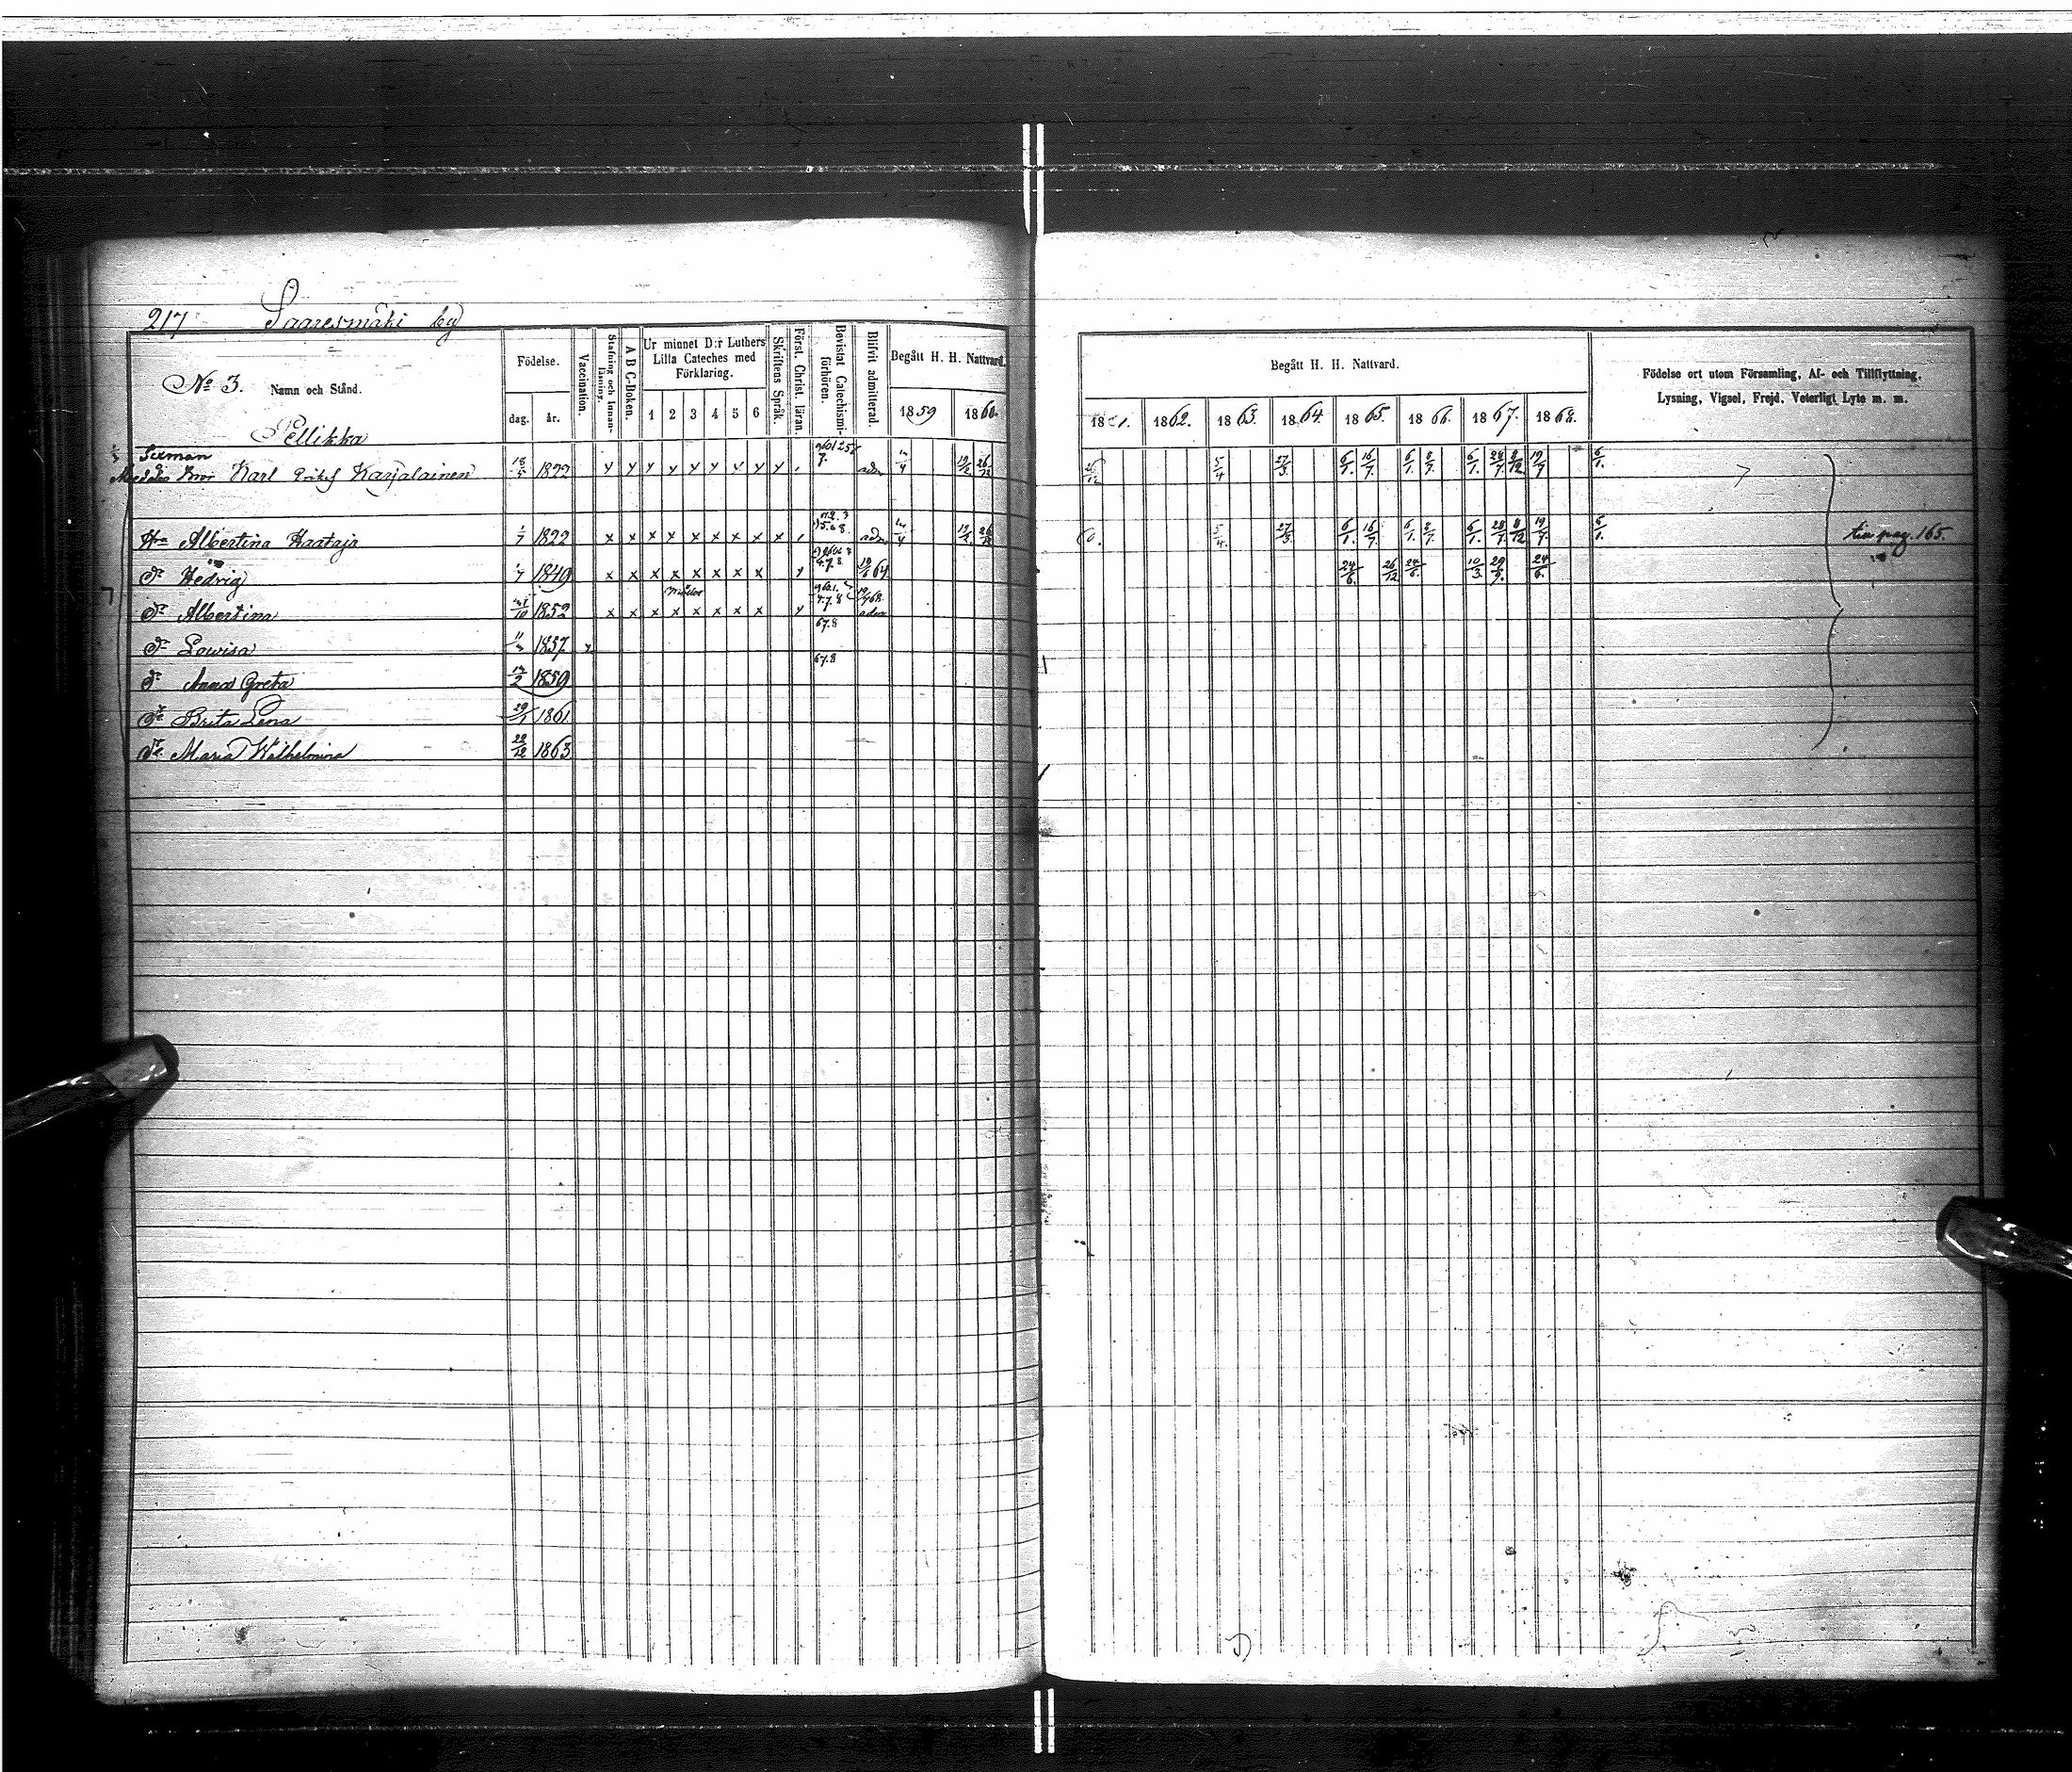 217 Saaresmäki by
No 3. Namn och Stånd.
Födelse.
dag. år.
Vaccination.
Stafning och Innanläsning.
A B C-Boken.
Ur minnet D:r Luthers Lilla Cateches med Förklaring.
1 2 3 4 5 6
Skriftens Språk.
Först. Christ. läran.
Bevistat Catechismi-förhören.
Blifvit admitterad.
Begått H. H. Nattvard.
1859 1860.
Begått H. H. Nattvard.
1861. 1862. 1863. 1864. 1865. 1866. 1867. 1868.
Födelse ort utom Församling, Af- och Tillflyttning,
Lysning, Vigsel, Frejd, Veterligt Lyte m. m.
Pellikka
Sexman
Karl Eriks Karjalainen 18/5 1822 adm 19/2 26/12 5/4 27/3 6/1. 16/7. 6/1. 8/7. 6/1. 28/7. 8/12 19/7 6/1.
Hru Albertina Kaataja 1/7 1822 x x x x x x x x x adm 19/2 26/12 5/4. 27/3 6/1. 16/7. 6/1. 8/7. 6/1. 28/7. 8/12 19/7. 6/1. pag. 165.
Dr Hedvig 1849 x x x x x x x x 19/6 64 24/6. 26/12 24/6. 10/3. 29/9. 24/6.
Dr Albertina 1852 x x x x x x x x adm
67.8
Dr Lowisa 1857 x
67.8
Dr Anna Greta 1859
Dr Brita Lena 29/1 1861
Dr Maria Wilhelmina 22/12 1863